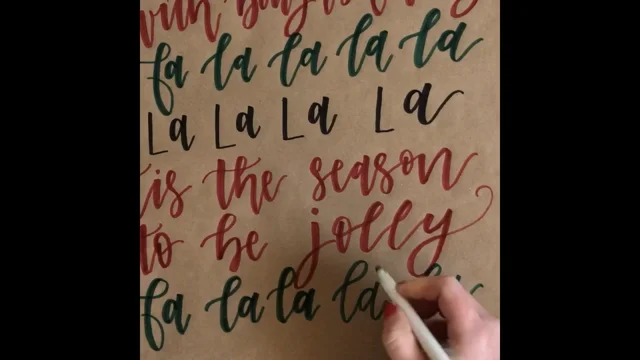 with
fa la la la la
La La La La
tis the season
to be jolly
fa la la la